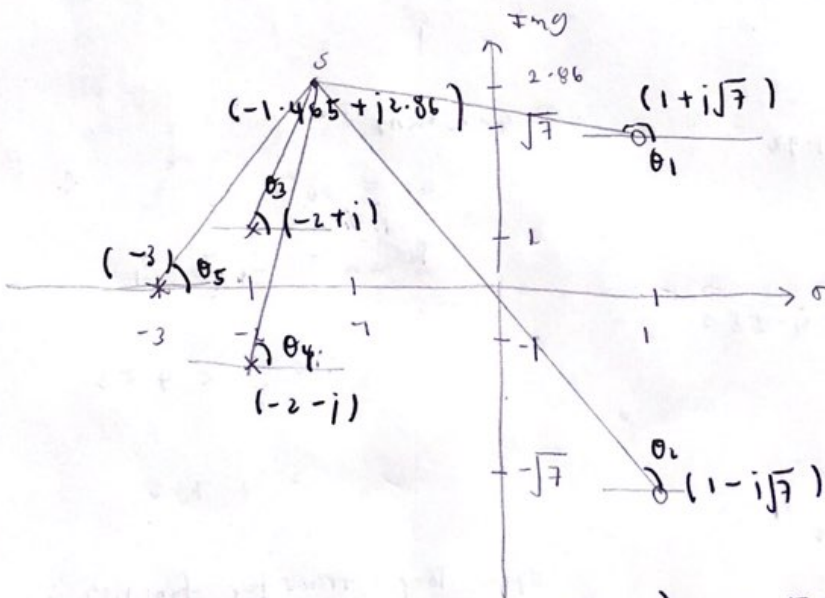 Img
S
2.86
(-1.465 + j2.86)
(1 + j√7)
√7
θ1
θ3
(-2+j)
1
(-3)
θ5
σ
-3
-1
1
θ4
(-2-j)
θ2
-√7
(1 - j√7)